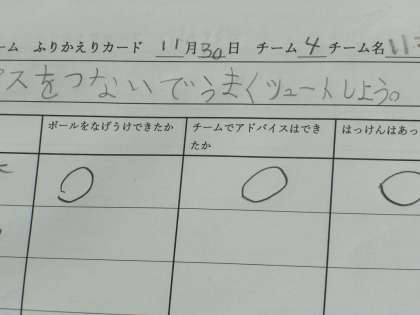 ーム ふりかえりカード 11月30日 チーム4 チーム名
パスをつないでうまくシュートしよう。
ボールをなげうけできたか チームでアドバイスはでき はっけんはあっ
たか